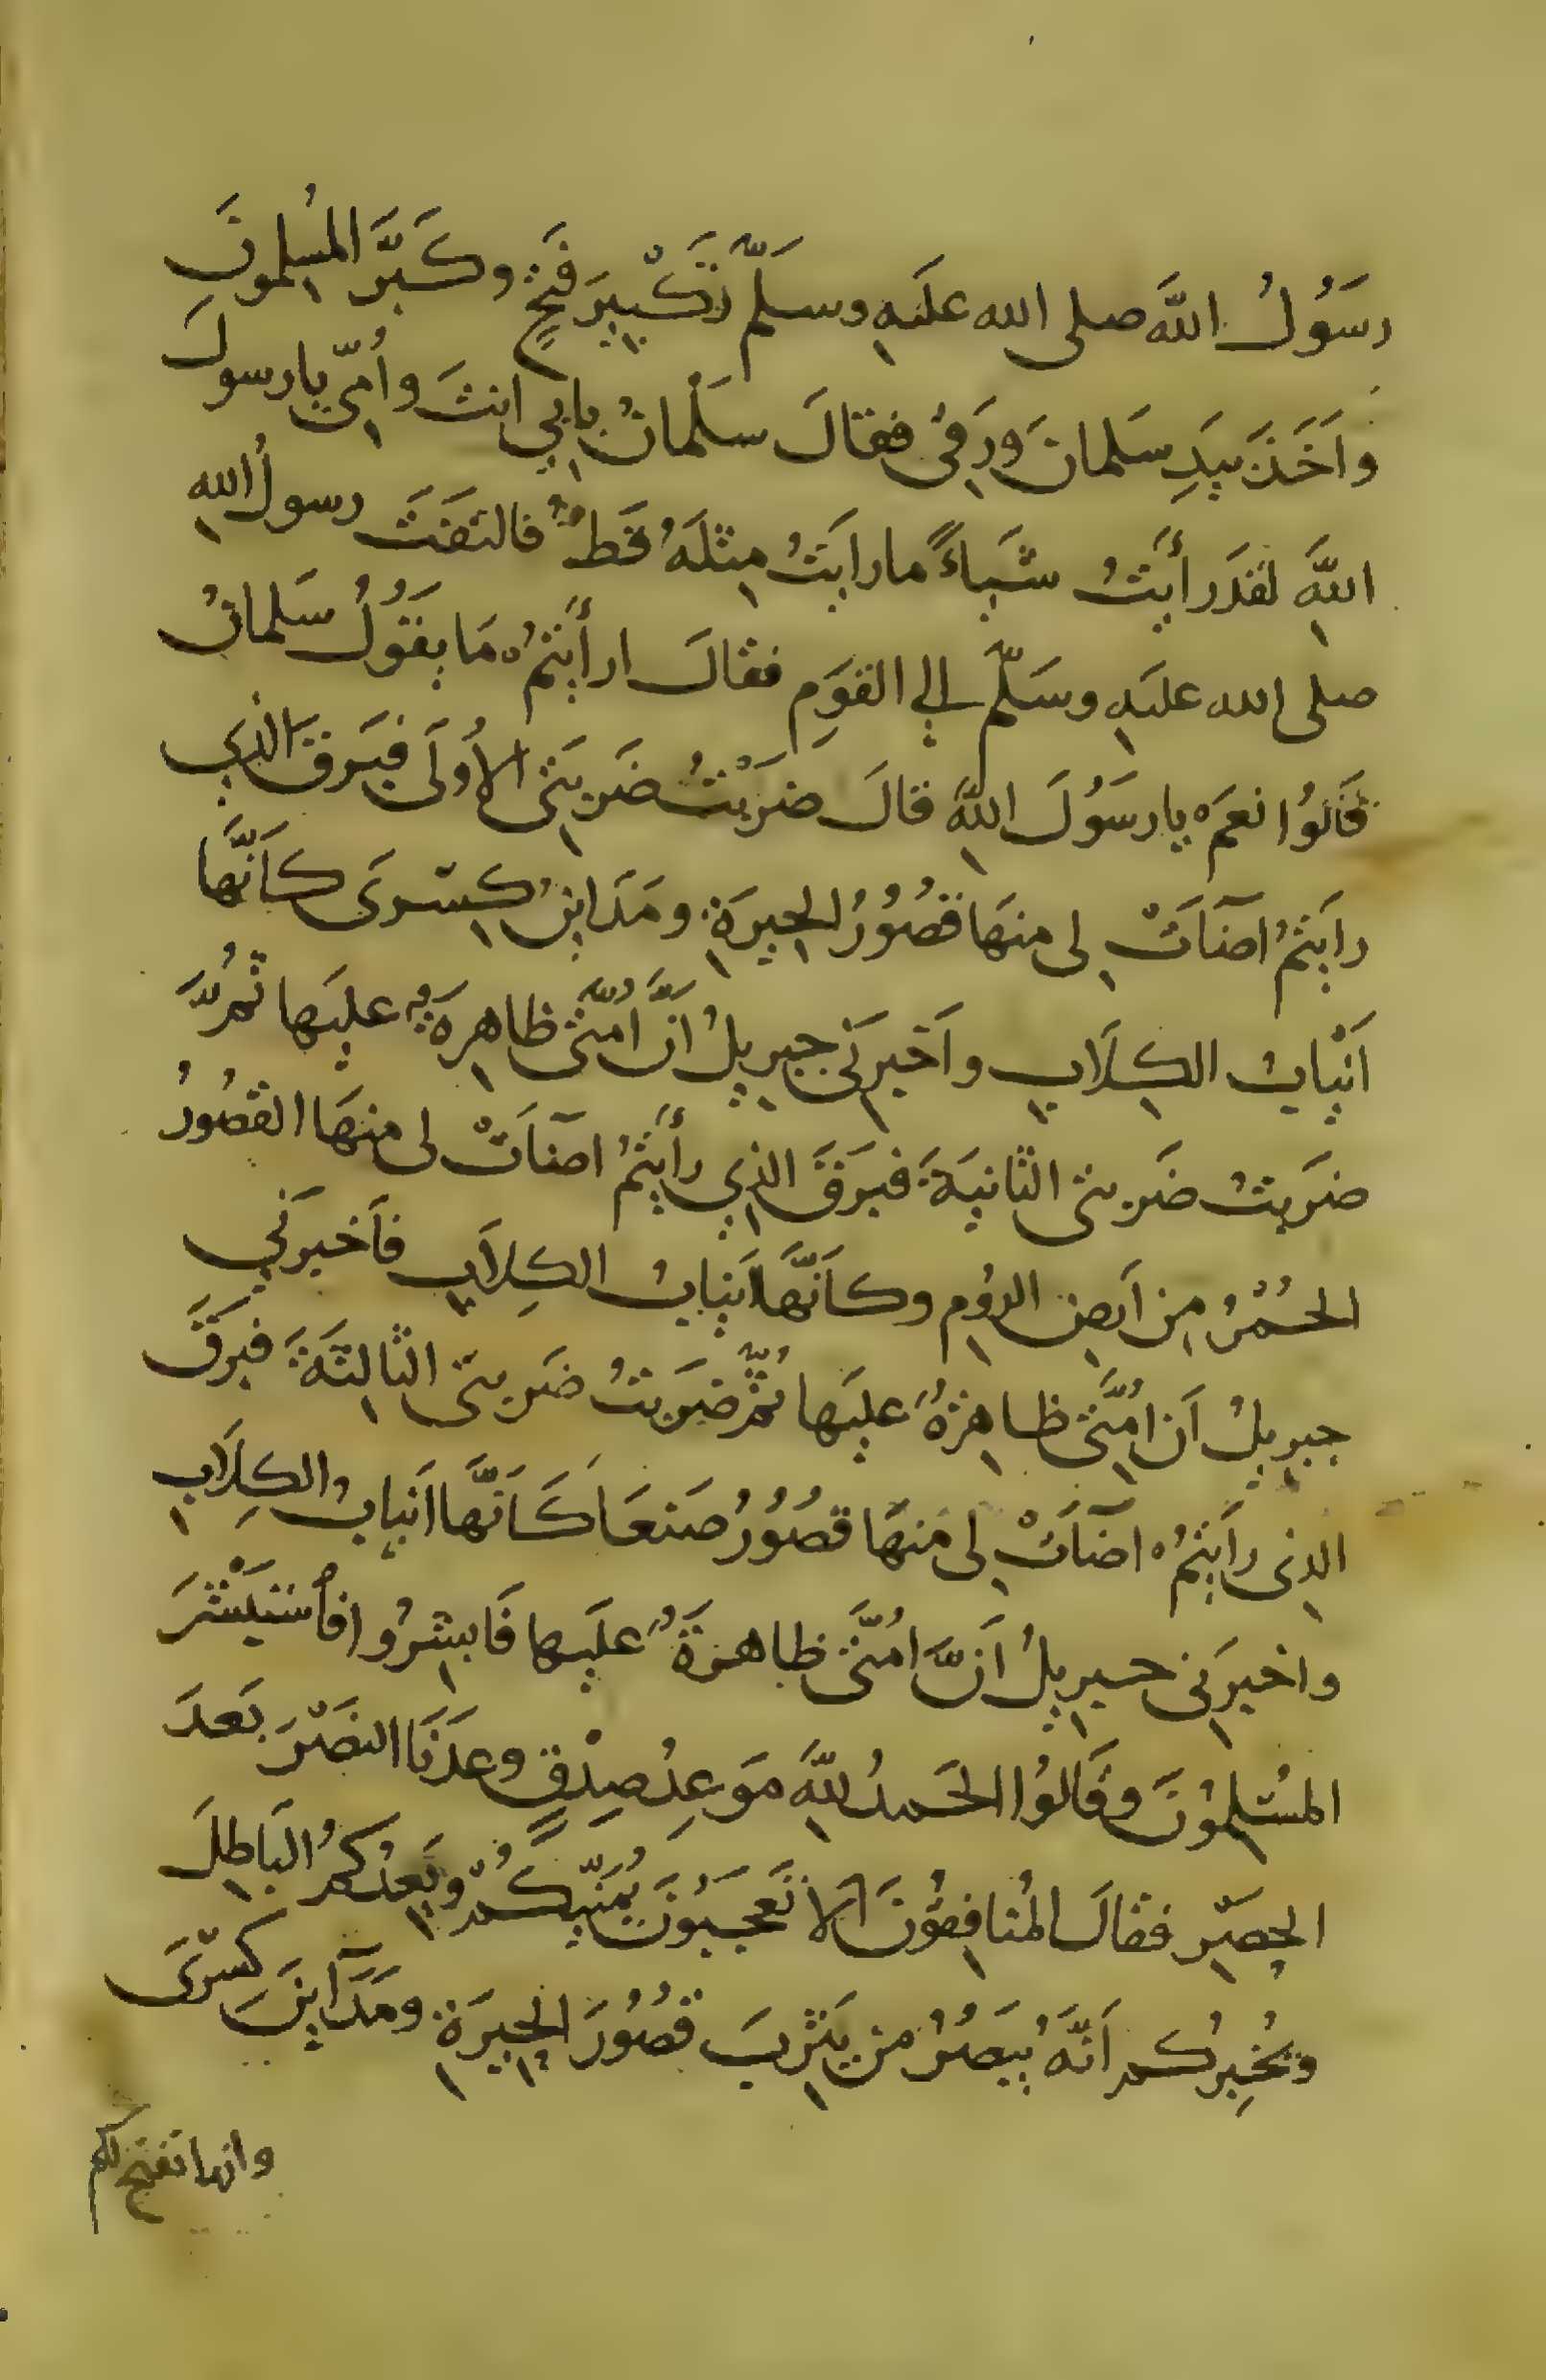 رَسُولُ اللَّهِ صلى الله علَيهِ وسلَّم تَكْبِيرَ فَتحٍ وكَبَّرَ المُسلِمونَ
واَخَذَ بيَدِ سَلمانَ ورَقِىَ فقالَ سلْمانُ بابِي انتَ وأُمِّي يا رسولَ
اللَّهِ لقَد رأَيتُ شَياءً ما رايَتُ مِثلَهُ قَط فالتفَتَ رسولُ اللهِ
صلى الله عليَهِ وسَلَّم الي القوَمِ فقالَ ارأَيتُم مَا يَقُولُ سَلمانُ
قَالوُا نعَم يا رسَوُلَ اللَّهِ قالَ ضرَبْتُ ضَربتِى الأُولَى فبَرقَ الَّذِي
رايَتمُ اضَآتْ لِى منهَا قصُوُرُ الحِيرَةِ ومَدَاينُ كِسرَى كاَنَّها
اَنْيابُ الكِلَابِ واَخبرَنِى جبرِيلُ انَّ امَّتِى ظاهِرَةٌ عليَها ثُمَّ
ضرَبتُ ضَربتى الثانيِةَ فبرَقَ الذِي رأَيتمُ اضآتْ لى منهَا القصُورُ
الحُمْرُ مِن اَرضِ الرومِ وكاَنَّها اَنيابُ الكِلاَبِ فاَخبرنَيِ
جبرِيلُ اَن امَّتِى ظاهِرةُ عليَها ثمَّ ضرَبتُ ضَربتى الثالِثةَ فبرَقَ
الذِى رايَتمُ اضآتْ لِى منهَا قصُوُرُ صَنعَا كَاَنَّها اَنيابُ الكِلَابِ
واخبرَنِى جبرِيلُ اَنَّ امَّتى ظاهرةٌ عليَها فَابشِرُوا فأستَبْشَرَ
المسُلِموُنَ وقَالوُا الحَمدُ للَّهِ مَوعِدُ صِدْقٍ وعَدَنَا النصَرَ بَعدَ
الحِصَرِ فقالَ المُنافِقوُنَ الا تَعجَبُونَ يُمَنِّيكُم ويَعِدُكمُ البَاطِلَ
ويُخبِرُكم اَنَّهُ يُبصَرُ من يَثرِبَ قصُورَ الحِيرَةِ ومَدَآينَ كِسْرَى
وانها تفتح لكم